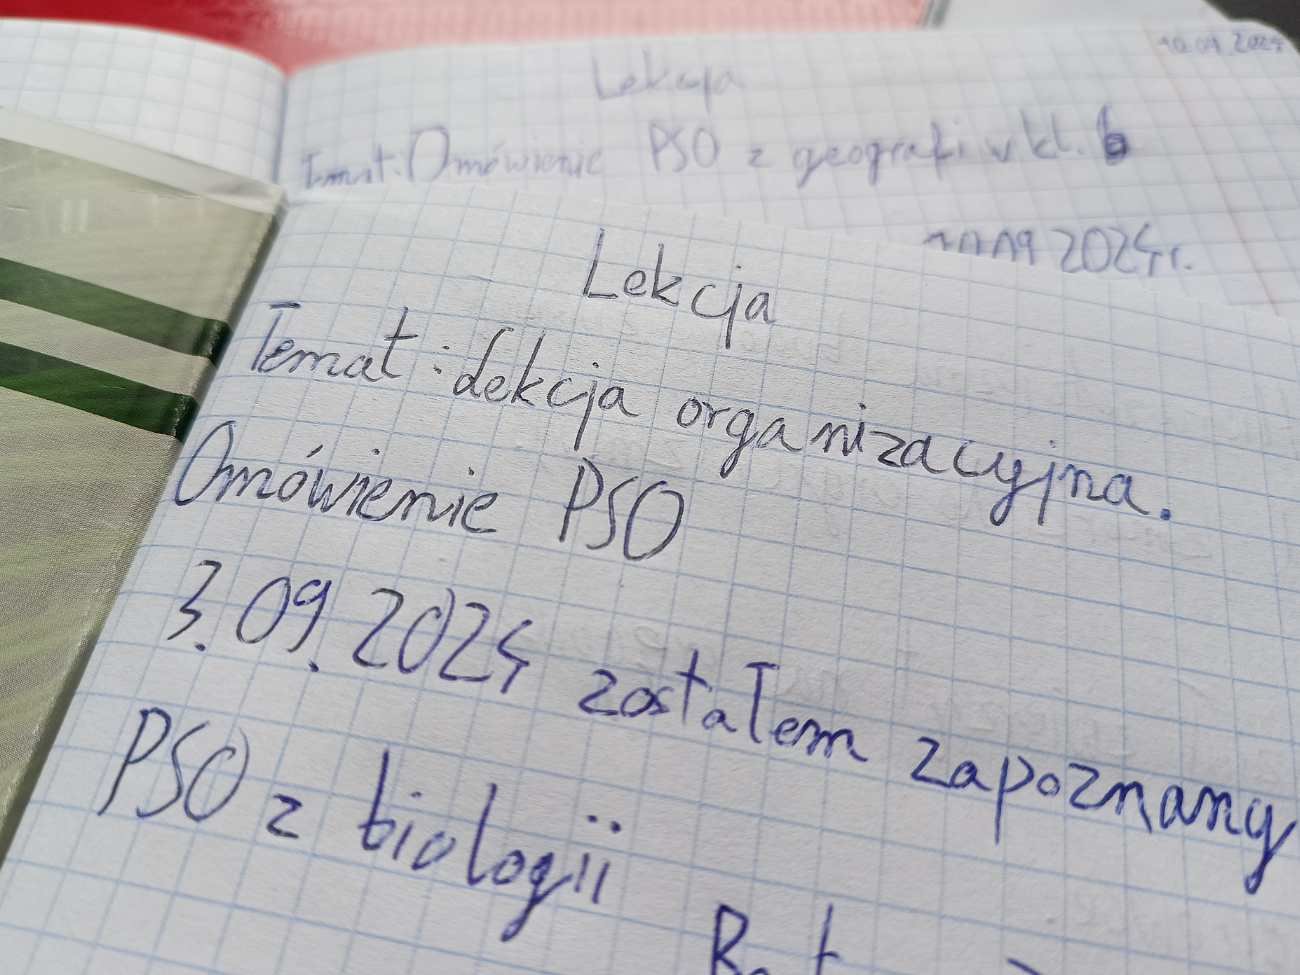 10.09.2024
Lekcja
Temat: Omówienie PSO z geografi w kl. 6
2024r.
Lekcja
Temat: Lekcja organizacyjna.
Omówienie PSO
3.09.2024 zostałem zapoznany
PSO z biologii